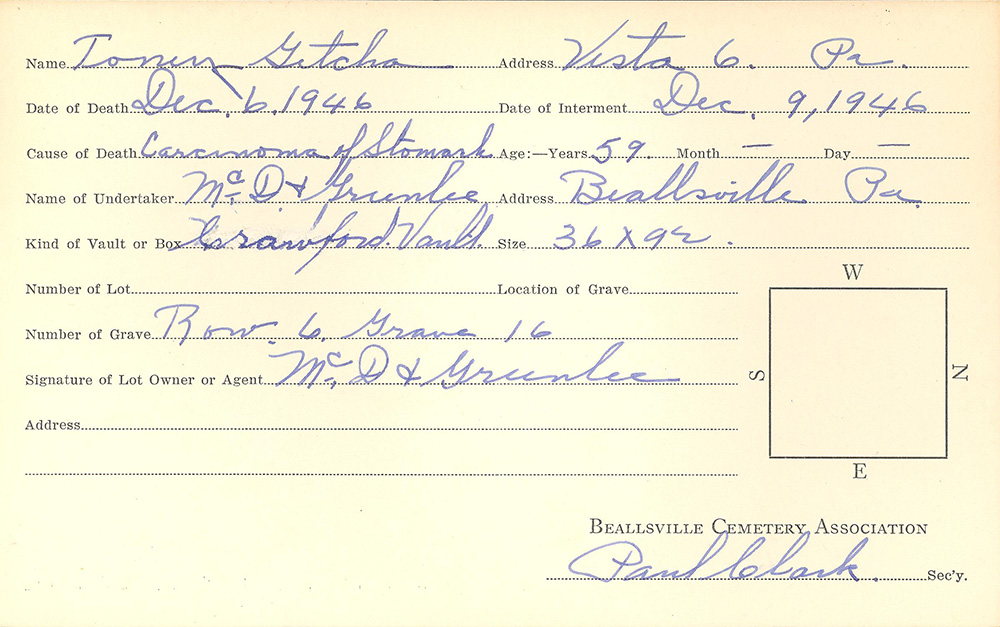 Name Toney Getcha Address Vista 6. Pa.
Date of Death Dec. 6. 1946 Date of Interment Dec. 9, 1946
Cause of Death Carcinoma of Stomack Age:—Years 59. Month — Day —
Name of Undertaker McD & Greenlee Address Beallsville Pa.
Kind of Vault or Box Crawford Vault. Size 36 X 92.
W
Number of Lot Location of Grave
Number of Grave Row 6. Grave 16
S N
Signature of Lot Owner or Agent McD & Greenlee
Address
E
BEALLSVILLE CEMETERY ASSOCIATION
Paul Clark. Sec'y.